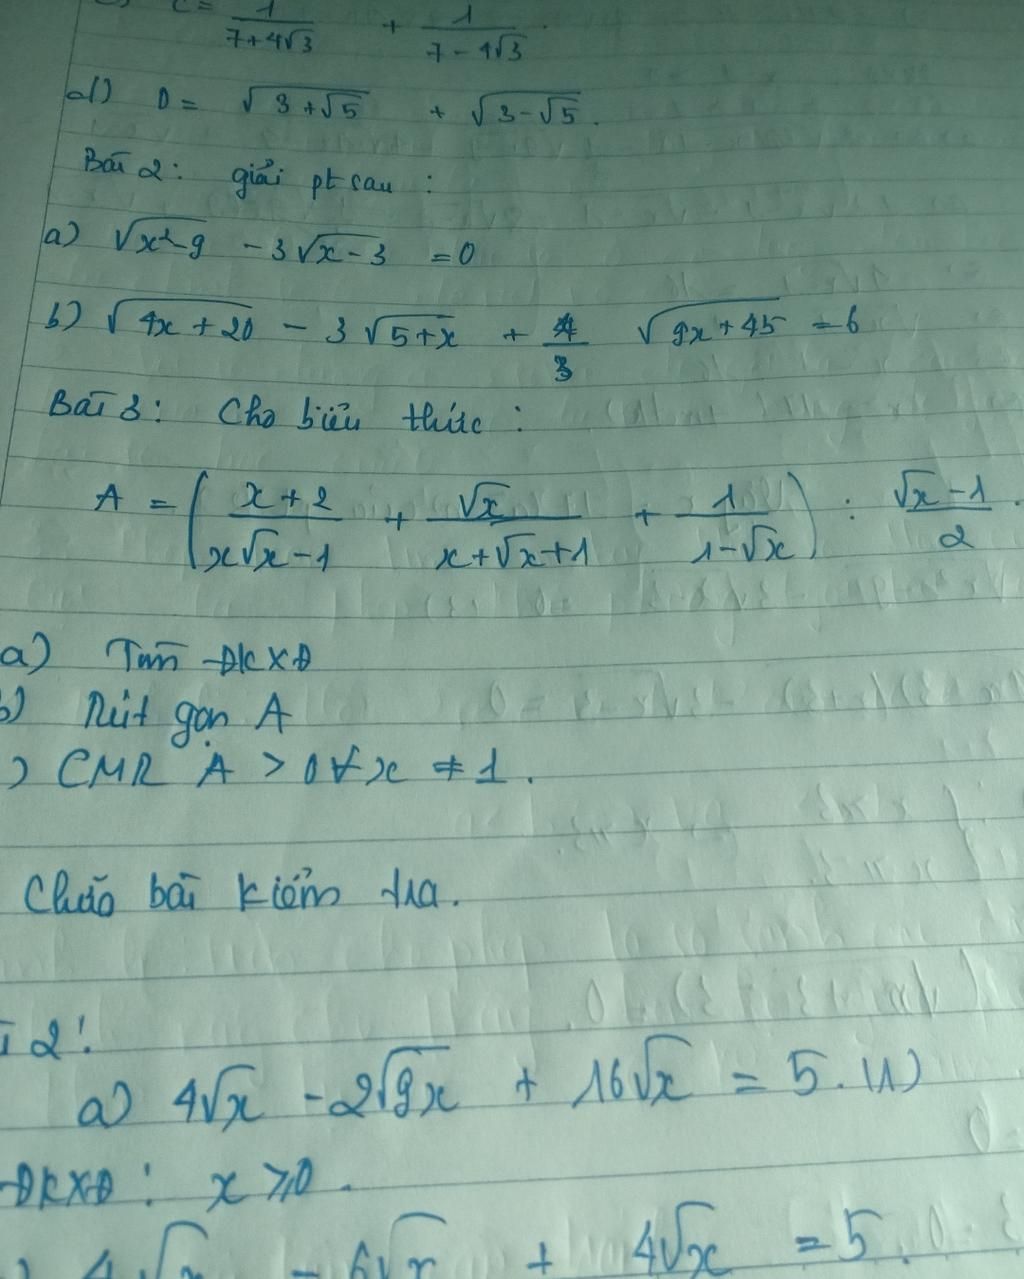 C = 1/(7+4√3) + 1/(7-4√3)
d) D = √(3+√5) + √(3-√5).
Bài 2: giải pt sau :
a) √(x²-9) - 3√(x-3) = 0
b) √(4x+20) - 3√(5+x) + 4/3 √(9x+45) = 6
Bài 3: Cho biểu thức :
A = ( (x+2)/(x√x-1) + √x/(x+√x+1) + 1/(1-√x) ) : (√x-1)/2 .
a) Tìm ĐKXĐ
b) Rút gọn A
) CMR A > 0 ∀ x ≠ 1 .
Chữa bài kiểm tra.
i 2:
a) 4√x - 2√(9x) + 16√x = 5. (1)
ĐKXĐ : x ≥ 0 .
) 4√x - 6√x + 4√x = 5.